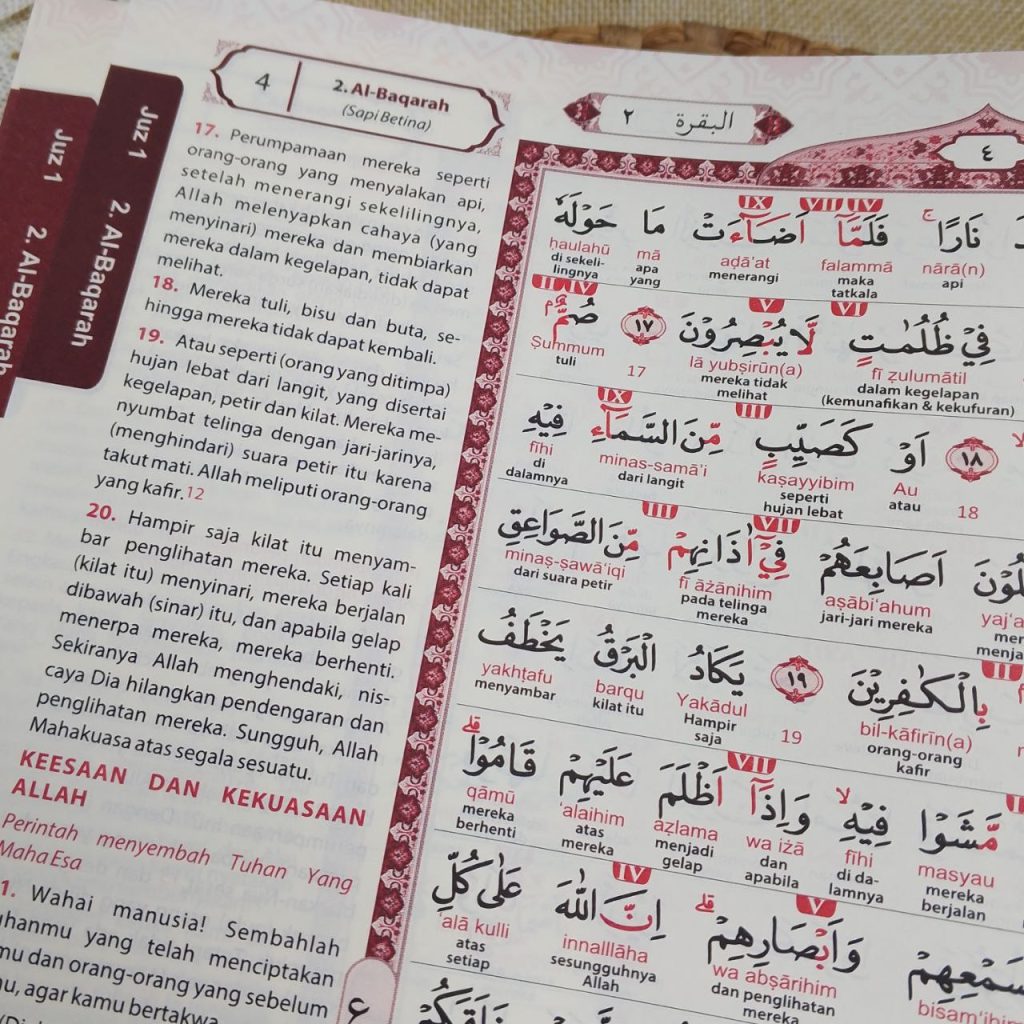 Juz 1
2. Al-Baqarah
Juz 1
2. Al-Baqarah
4
2. Al-Baqarah
(Sapi Betina)
17. Perumpamaan mereka seperti
orang-orang yang menyalakan api,
setelah menerangi sekelilingnya,
Allah melenyapkan cahaya (yang
menyinari) mereka dan membiarkan
mereka dalam kegelapan, tidak dapat
melihat.
18. Mereka tuli, bisu dan buta, se-
hingga mereka tidak dapat kembali.
19. Atau seperti (orang yang ditimpa)
hujan lebat dari langit, yang disertai
kegelapan, petir dan kilat. Mereka me-
nyumbat telinga dengan jari-jarinya,
(menghindari) suara petir itu karena
takut mati. Allah meliputi orang-orang
yang kafir.12
20. Hampir saja kilat itu menyam-
bar penglihatan mereka. Setiap kali
(kilat itu) menyinari, mereka berjalan
dibawah (sinar) itu, dan apabila gelap
menerpa mereka, mereka berhenti.
Sekiranya Allah menghendaki, nis-
caya Dia hilangkan pendengaran dan
penglihatan mereka. Sungguh, Allah
Mahakuasa atas segala sesuatu.
KEESAAN DAN KEKUASAAN
ALLAH
Perintah menyembah Tuhan Yang
Maha Esa
1. Wahai manusia! Sembahlah
uhanmu yang telah menciptakan
mu dan orang-orang yang sebelum
u, agar kamu bertakwa.
البقرة ٢
٤
IX VII IV
نَارًاۚ فَلَمَّآ اَضَاۤءَتْ مَا حَوْلَهٗ
nārā(n) falammā aḍā'at mā ḥaulahū
api maka tatkala menerangi apa yang di sekeli-lingnya
II IV V VI
فِيْ ظُلُمٰتٍ لَّا يُبْصِرُوْنَ ١٧ صُمٌّۢ
fī ẓulumātil lā yubṣirūn(a) 17 Ṣummum
dalam kegelapan (kemunafikan & kekufuran) mereka tidak melihat tuli
IX III
١٨ اَوْ كَصَيِّبٍ مِّنَ السَّمَاۤءِ فِيْهِ
18 Au kaṣayyibim minas-samā'i fīhi
atau seperti hujan lebat dari langit di dalamnya
III VII
اَصَابِعَهُمْ فِيْٓ اٰذَانِهِمْ مِّنَ الصَّوَاعِقِ
aṣābi'ahum fī āżānihim minaṣ-ṣawā'iqi
jari-jari mereka pada telinga mereka dari suara petir
II
بِالْكٰفِرِيْنَ ١٩ يَكَادُ الْبَرْقُ يَخْطَفُ
bil-kāfirīn(a) 19 Yakādul barqu yakhṭafu
orang-orang kafir Hampir saja kilat itu menyambar
VII
مَّشَوْا فِيْهِۙ وَاِذَآ اَظْلَمَ عَلَيْهِمْ قَامُوْاۗ
masyau fīhi wa iżā aẓlama 'alaihim qāmū
mereka berjalan di da-lamnya dan apabila menjadi gelap atas mereka mereka berhenti
IV V
وَاَبْصَارِهِمْۗ اِنَّ اللّٰهَ عَلٰى كُلِّ
wa abṣārihim innalllāha 'alā kulli
dan penglihatan mereka sesungguhnya Allah atas setiap
خَلَقَكُمْ